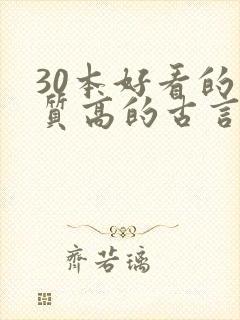 30本好看的
质高的古言
齐若璃